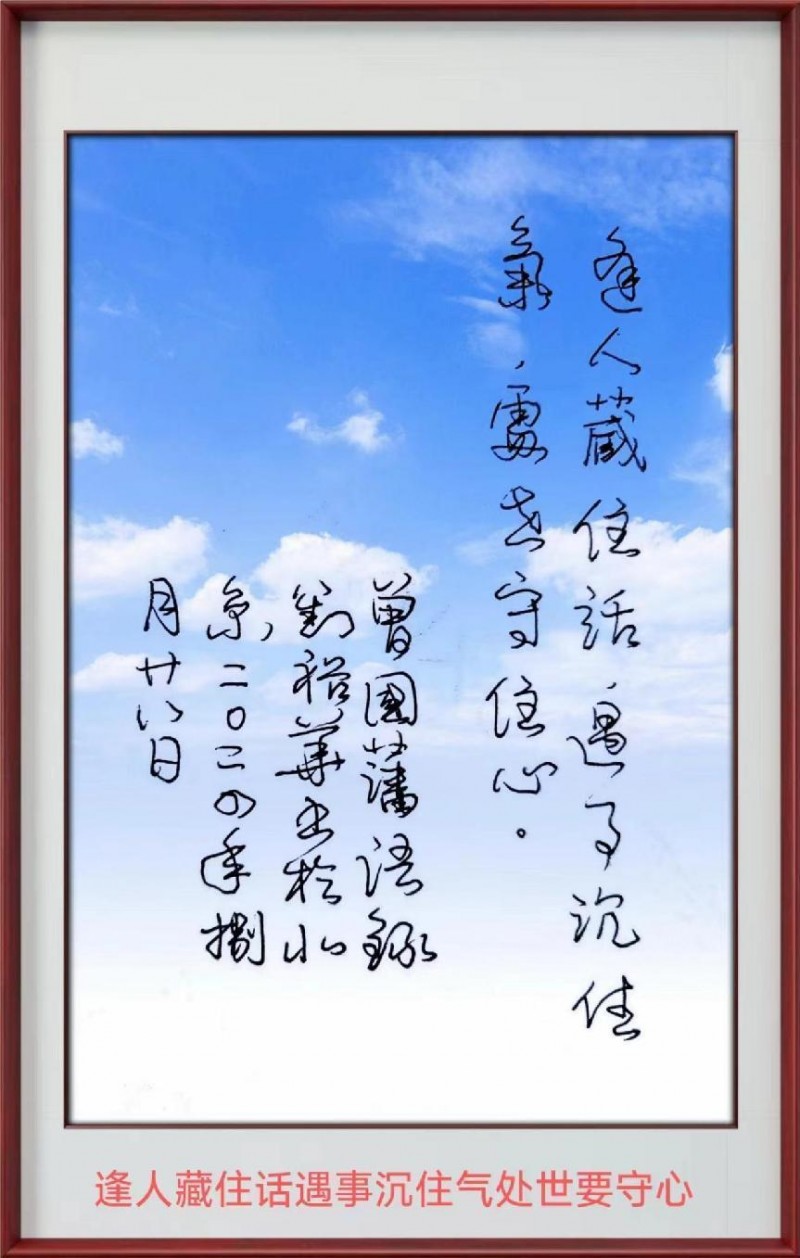 逢人藏住話，遇事沉住
氣，處世守住心。
曾國藩語錄
劉裕華書於北
京，二〇二四年捌
月廿八日
逢人藏住话遇事沉住气处世要守心